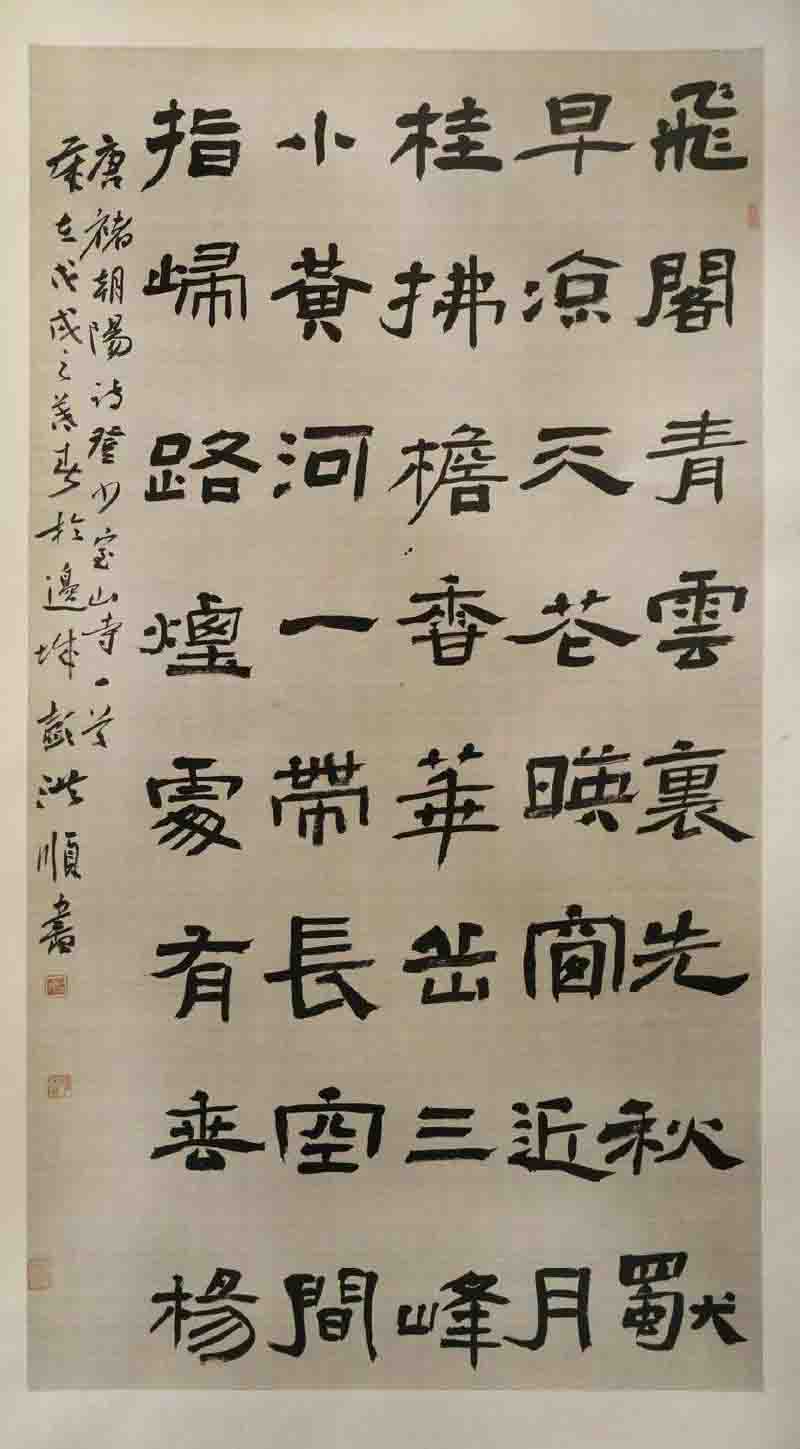 飛閣青雲裏先秋獨
早涼天花映窗近月
桂拂檐香華岳三峰
小黃河一帶長空間
指歸路煙處有垂楊
唐褚朝陽詩登少室山寺一首
歲在戊戌之暮春於邊城彭洪順書